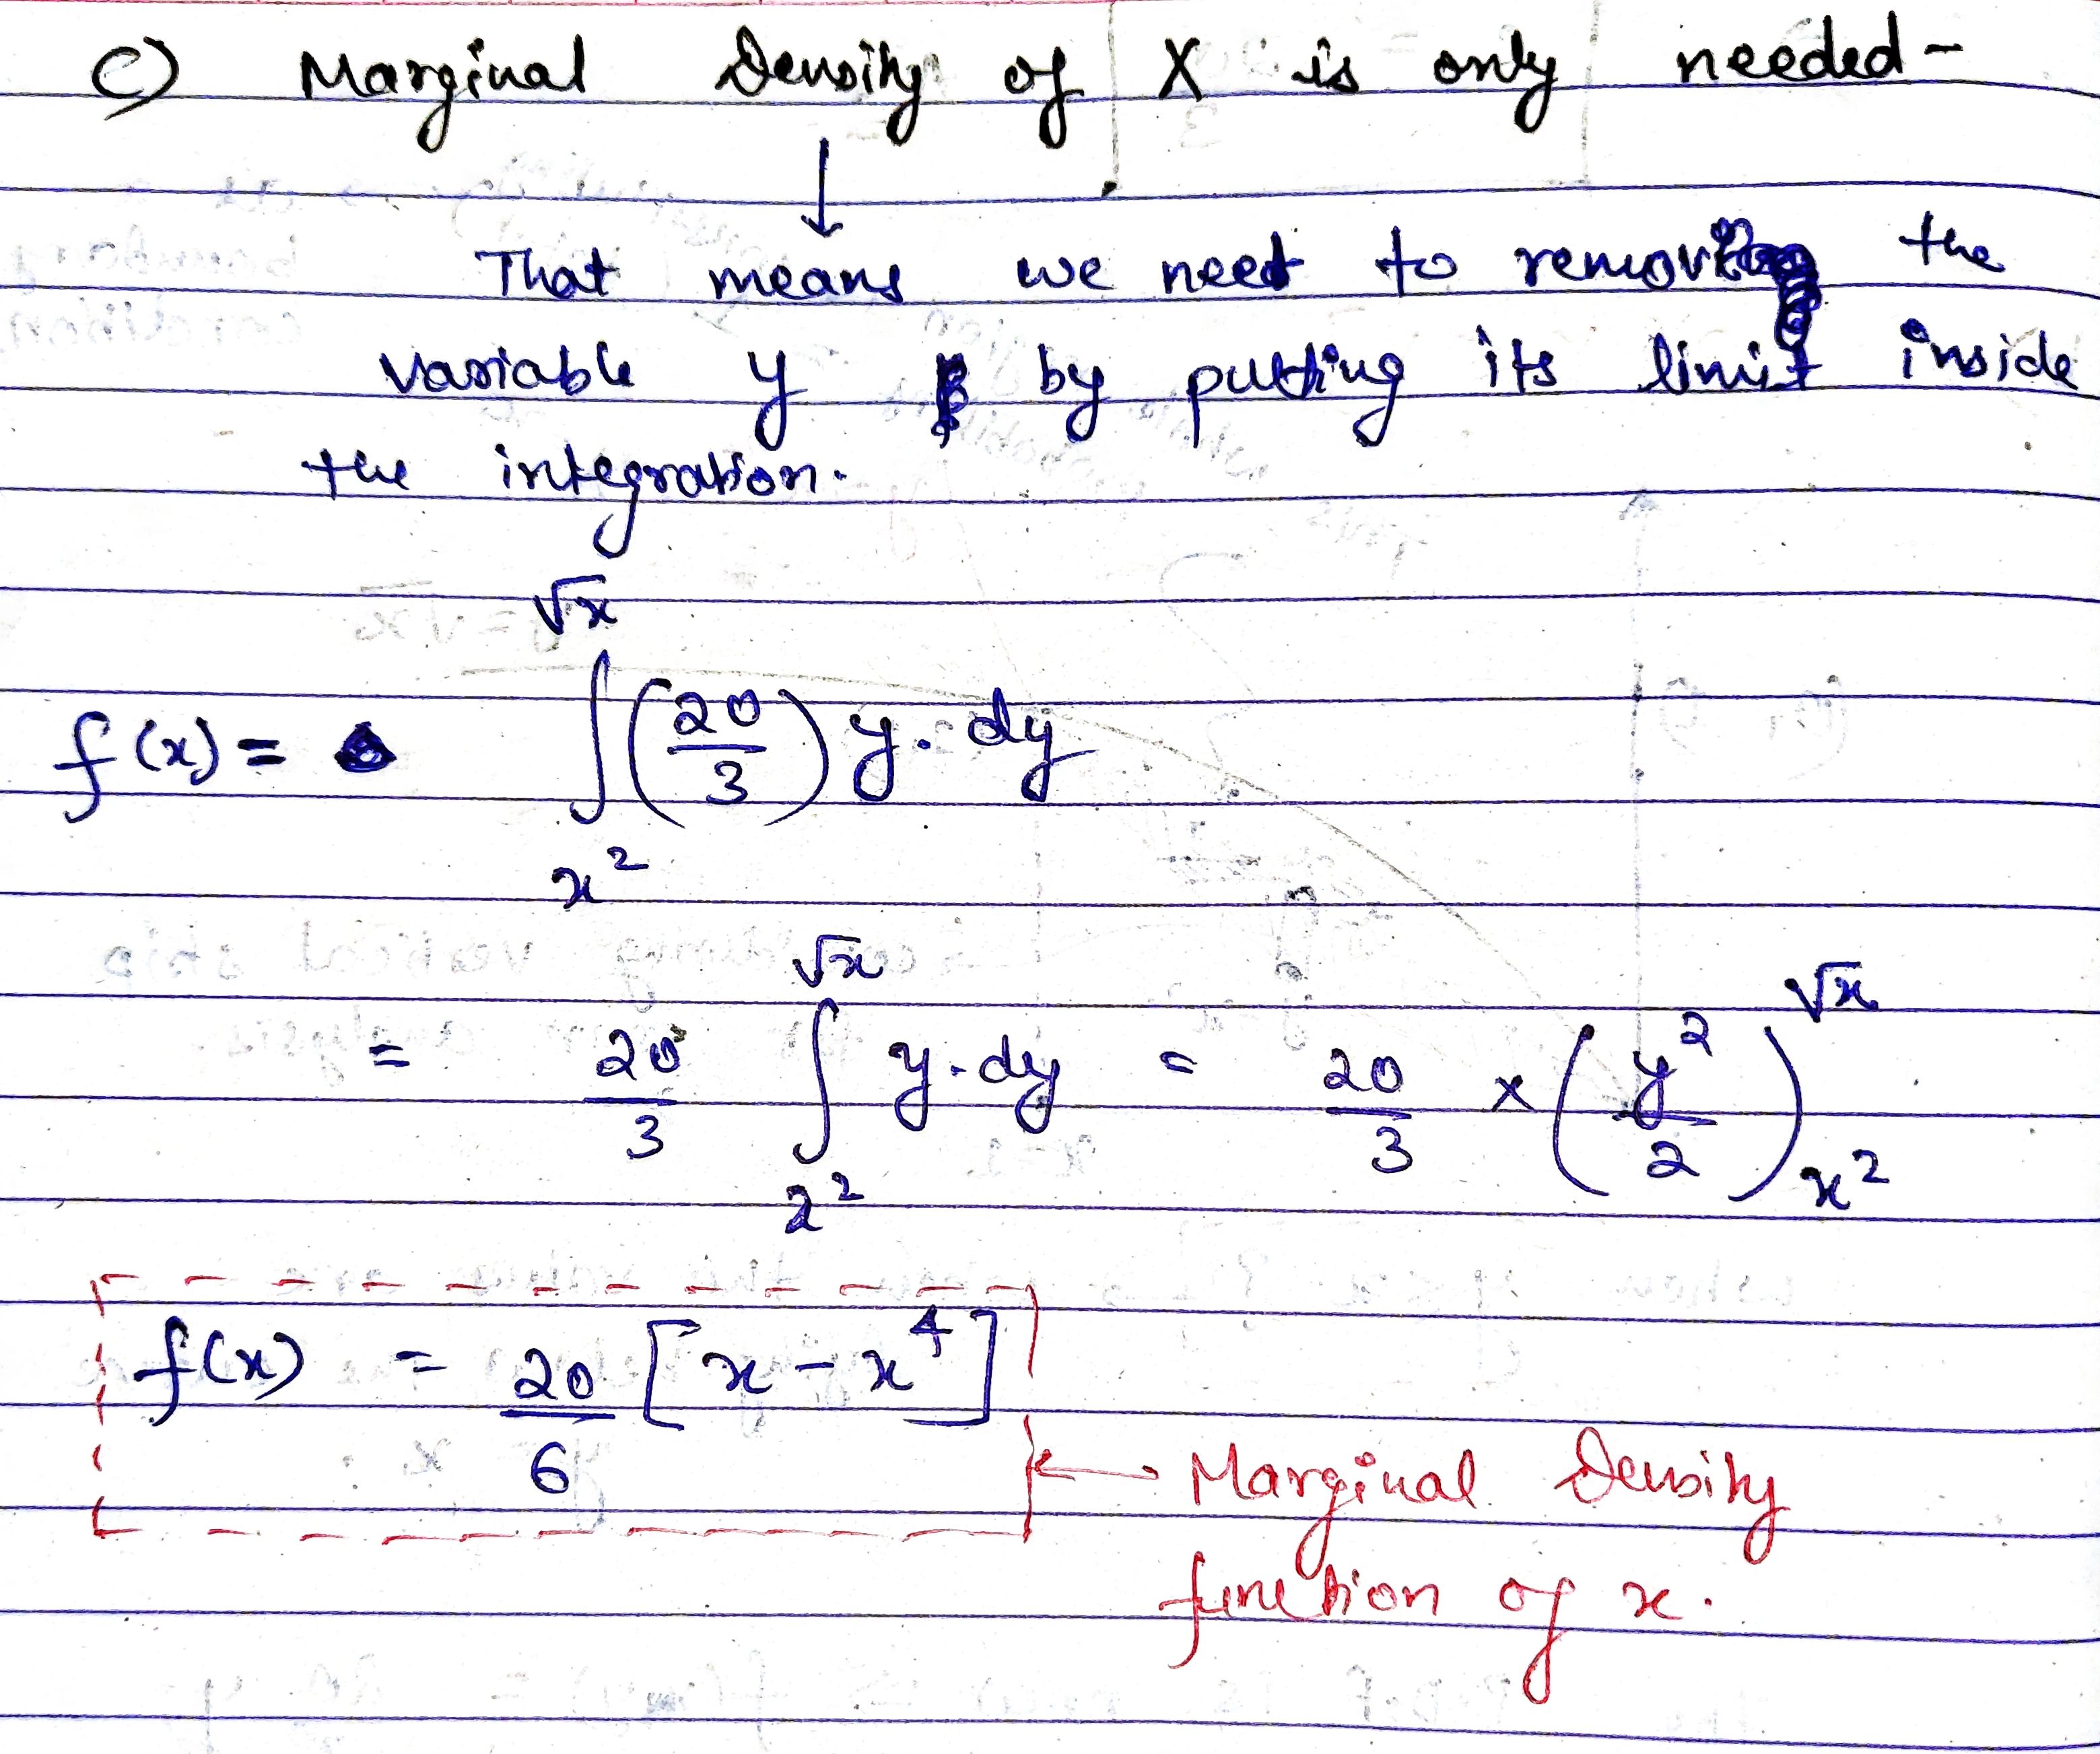 c) Marginal Density of X is only needed-
↓
That means we need to remov the
variable y by putting its limit inside
the integration.
f(x) = ∫_{x²}^{√x} (20/3) y. dy
= 20/3 ∫_{2²}^{√x} y. dy = 20/3 × (y²/2)_{x²}^{√x}
f(x) = 20/6 [x - x⁴]
← Marginal Density
function of x.